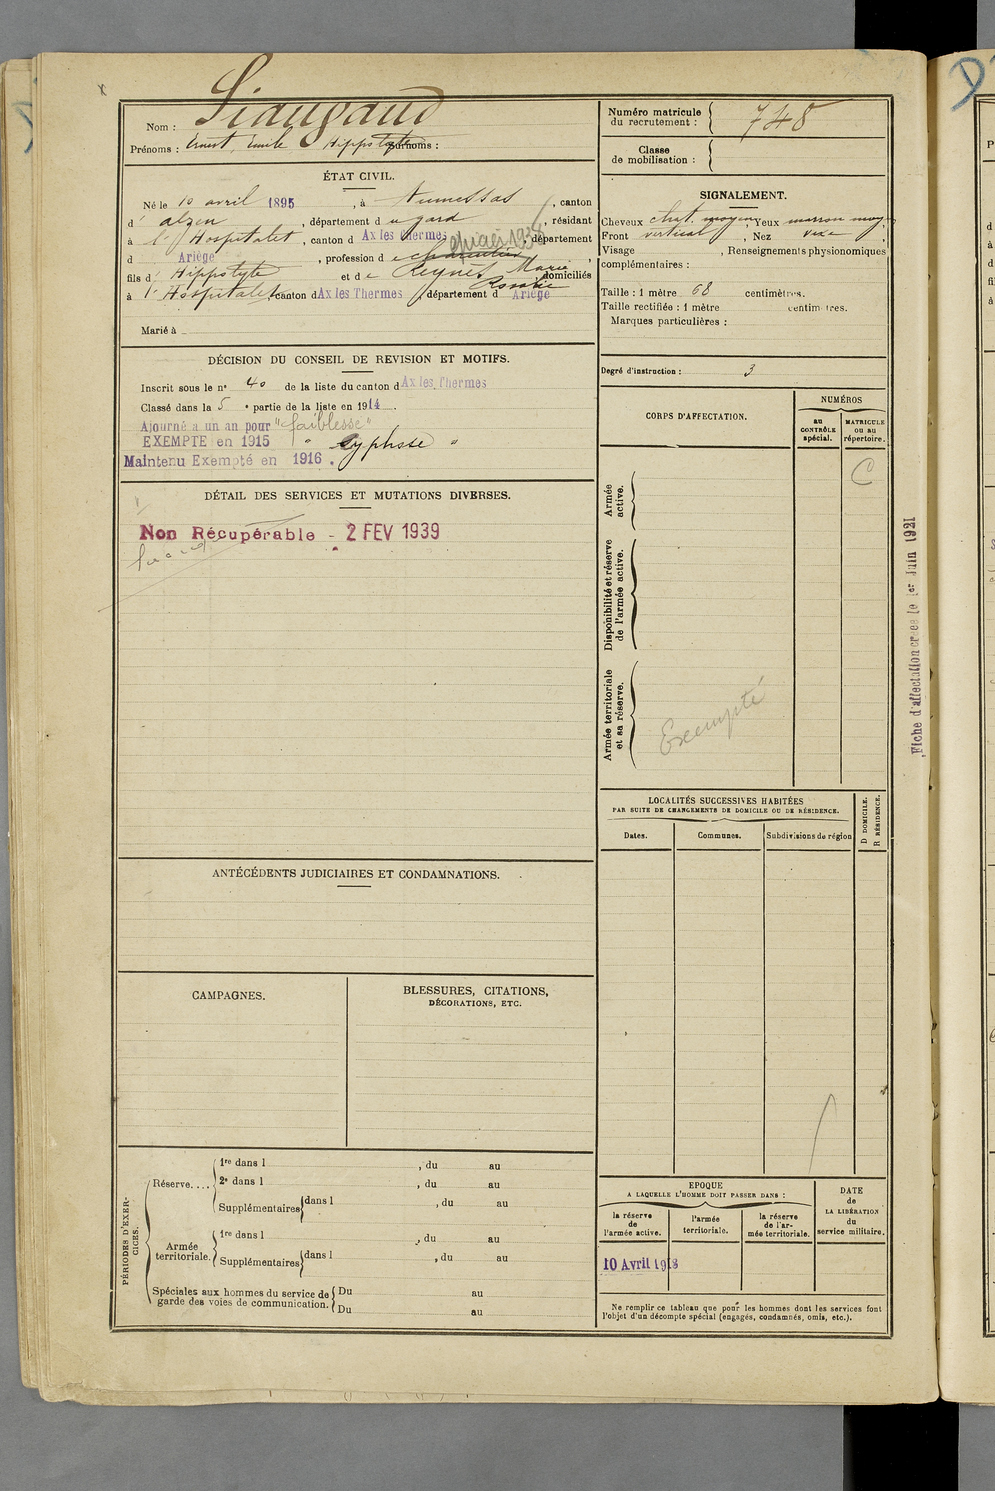 Nom : Liaugaud
Prénoms : Ernest, Emile Hippolyte Surnoms :
Numéro matricule du recrutement : 748
Classe de mobilisation :
ÉTAT CIVIL.
Né le 10 avril 1895, à Aumessas, canton
d' alzen, département du gard, résidant
à l'Hospitalet, canton d Ax les Thermes, département
d Ariège, profession de charcutier épicier 1938,
fils d' Hippolyte et de Reynès Marie Rosalie, domiciliés
à l'Hospitalet, canton d Ax les Thermes, département d Ariège
Marié à
SIGNALEMENT.
Cheveux chat. moyen, Yeux marron moy.
Front vertical, Nez vexe,
Visage , Renseignements physionomiques
complémentaires :
Taille : 1 mètre 68 centimètres.
Taille rectifiée : 1 mètre centimètres.
Marques particulières :
Degré d'instruction : 3
DÉCISION DU CONSEIL DE REVISION ET MOTIFS.
Inscrit sous le n° 40 de la liste du canton d Ax les Thermes
Classé dans la 5e partie de la liste en 1914.
Ajourné à un an pour "faiblesse"
EXEMPTE en 1915 " cyphose "
Maintenu Exempté en 1916.
DÉTAIL DES SERVICES ET MUTATIONS DIVERSES.
Non Récupérable - 2 FEV 1939
CORPS D'AFFECTATION.
NUMÉROS
au CONTRÔLE spécial.
MATRICULE ou au répertoire.
C
Armée active.
Disponibilité et réserve de l'armée active.
Armée territoriale et sa réserve.
Exempté
Fiche d'affectation créée le 1er Juin 1921
LOCALITÉS SUCCESSIVES HABITÉES
PAR SUITE DE CHANGEMENTS DE DOMICILE OU DE RÉSIDENCE.
Dates.
Communes.
Subdivisions de région
D DOMICILE.
R RÉSIDENCE.
ANTÉCÉDENTS JUDICIAIRES ET CONDAMNATIONS.
CAMPAGNES.
BLESSURES, CITATIONS,
DÉCORATIONS, ETC.
PÉRIODES D'EXERCICES.
Réserve....
1re dans l , du au
2e dans l , du au
Supplémentaires dans l , du au
Armée territoriale.
1re dans l , du au
Supplémentaires dans l , du au
Spéciales aux hommes du service de garde des voies de communication.
Du au
Du au
EPOQUE
A LAQUELLE L'HOMME DOIT PASSER DANS :
la réserve de l'armée active.
l'armée territoriale.
la réserve de l'armée territoriale.
DATE de LA LIBÉRATION du service militaire.
10 Avril 1918
Ne remplir ce tableau que pour les hommes dont les services font
l'objet d'un décompte spécial (engagés, condamnés, omis, etc.).